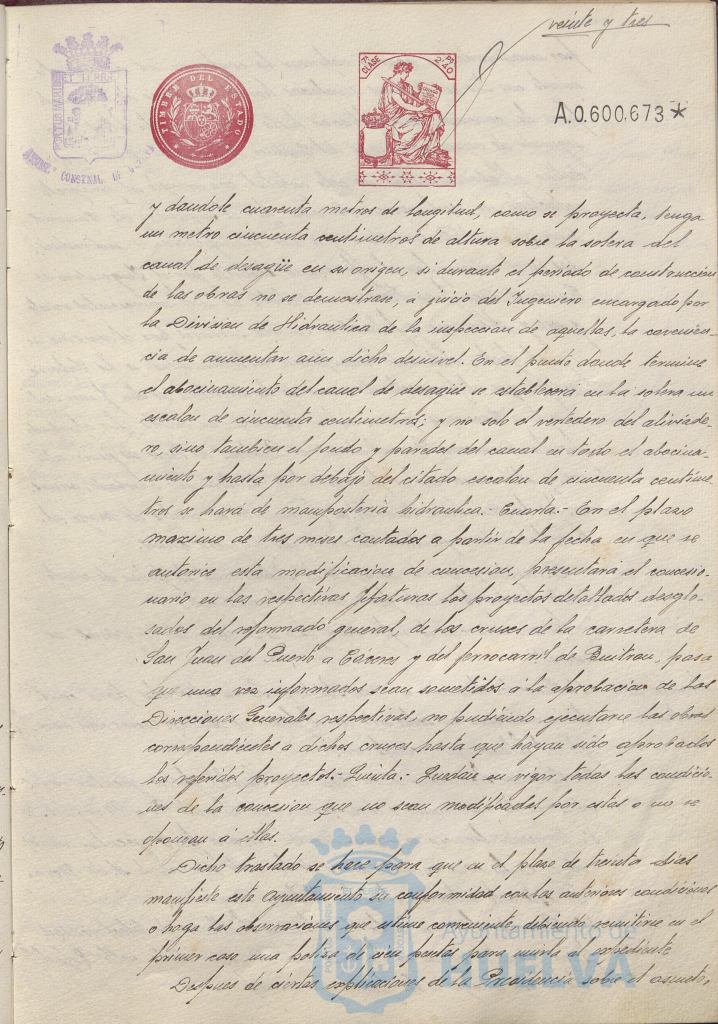 veinte y tres
PORTUS MARIS ET TERRAE
CONSTNAL. DE
TIMBRE DEL ESTADO
7ª CLASE
2'40 Ps
A.0.600.673*
y dandole cuarenta metros de longitud, como se proyecta, tenga
un metro cincuenta centimetros de altura sobre la solera del
canal de desagüe en su origen, si durante el periodo de construccion
de las obras no se demostrase, á juicio del Ingeniero encargado por
la Division de Hidraulica de la inspeccion de aquellas, la convenien-
cia de aumentar aun dicho desnivel. En el punto donde termine
el abocinamiento del canal de desagüe se establecerá en la solera un
escalon de cincuenta centimetros; y no solo el vertedero del aliviade-
ro, sino tambien el fondo y paredes del canal en todo el abocina-
miento y hasta por debajo del citado escalon de cincuenta centime-
tros se hará de mamposteria hidraulica.- Cuarta.- En el plazo
maximo de tres meses contados a partir de la fecha en que se
autorice esta modificacion de concesion, presentará el concesio-
nario en las respectivas Jefaturas los proyectos detallados desglo-
sados del reformado general, de los cruces de la carretera de
San Juan del Puerto a Cáceres y del ferrocarril de Buitron, para
que una vez informados sean sometidos á la aprobacion de las
Direcciones Generales respectivas, no pudiendo ejecutarse las obras
correspondientes a dichos cruces hasta que hayan sido aprobados
los referidos proyectos.- Quinta.- Quedan en vigor todas las condicio-
nes de la concesion que no sean modificadas por estas o no se
opongan á ellas.
Dicho traslado se hace para que en el plazo de treinta dias
manifieste este Ayuntamiento su conformidad con las anteriores condiciones
o haga las observaciones que estime conveniente, debiendo remitirse en el
primer caso una poliza de cien pesetas para unirla al expediente
Despues de ciertas explicaciones de la Presidencia sobre el asunto,
Ayuntamiento de
HUELVA